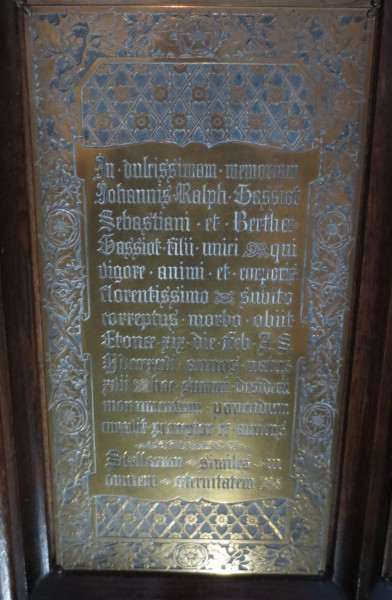 In · dulcissimam · memoriam
Johannis · Ralph · Gassiot
Sebastiani · et · Berthæ
Gassiot · filii · unici · qui
vigore · animi · et · corporis
florentissimo · subito
correptus · morbo · obiit
Etonæ · xix · die · Feb · A · S
annos · natus
xvii · hoc · summi · desiderii
monumentum · ponendum
curavit · præceptor · et · amicus
Stellarum · similes · in
omnem · æternitatem